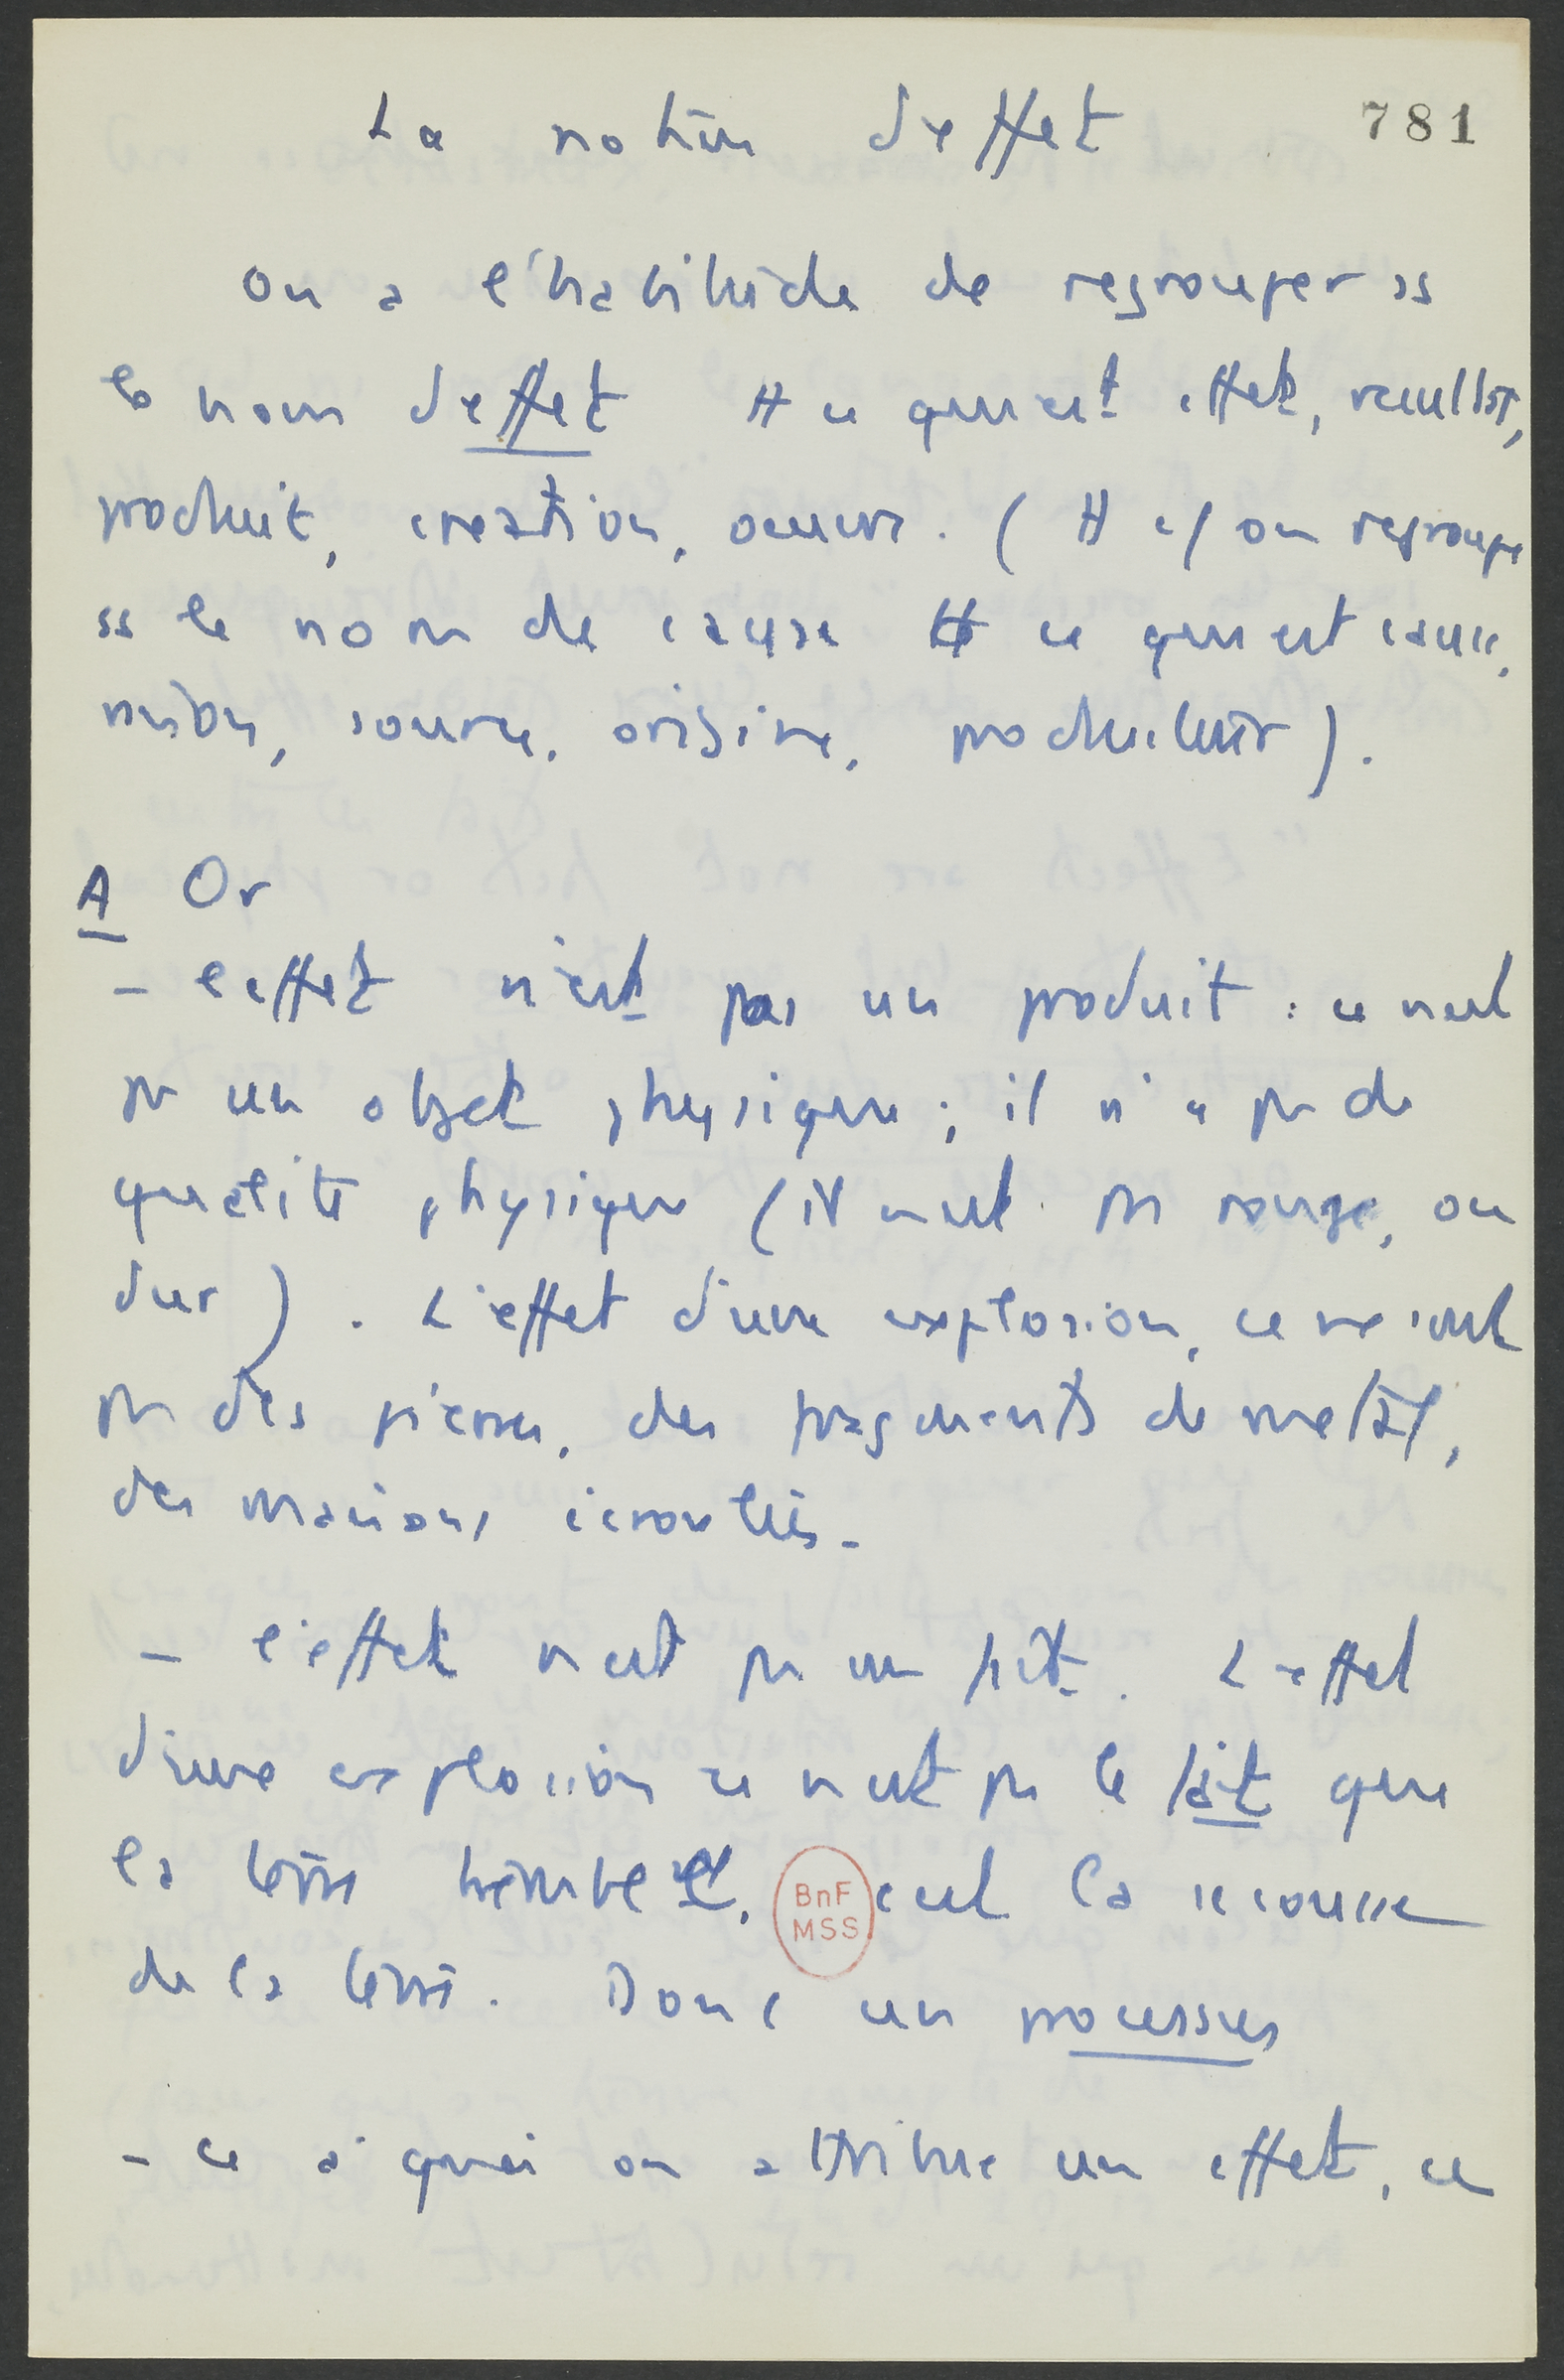 La notion d'effet 781
On a l'habitude de regrouper ss
le nom d'effet tt ce qui est effet, resultat,
produit, creation, oeuvre. (tt c/ on regroupe
ss le nom de cause tt ce qui est cause,
raison, source, origine, producteur).
A Or
- l'effet n'est pas un produit : ce n'est
pas un objet physique ; il n'a pas de
qualité physique (il n'est pas rouge, ou
dur). L'effet d'une explosion, ce ne sont
pas des pierres, des fragments de metal,
des maisons écroulées.
- l'effet n'est pas un fait. L'effet
d'une explosion ce n'est pas le fait que
la terre tremble, c'est la secousse
BnF
MSS
de la terre. Donc un processus
- ce à quoi on attribue un effet, ce